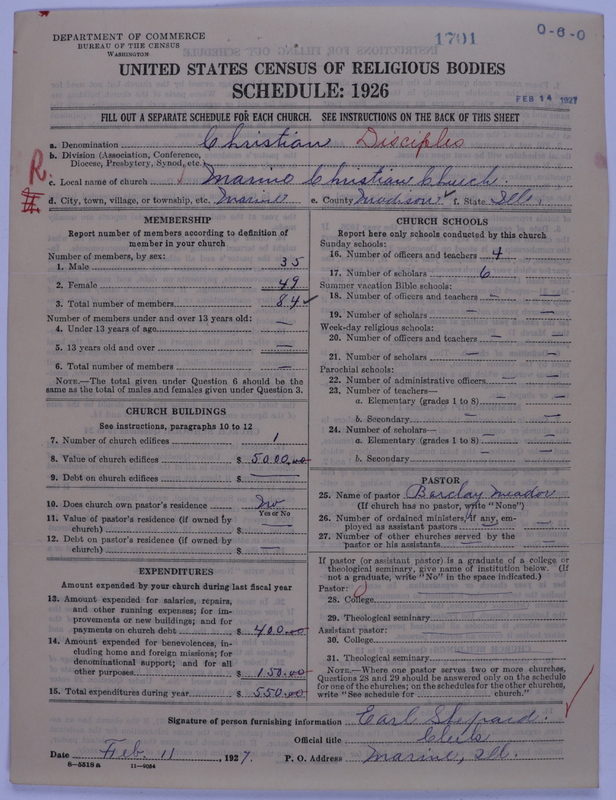 DEPARTMENT OF COMMERCE
BUREAU OF THE CENSUS
WASHINGTON
1701
0-6-0
UNITED STATES CENSUS OF RELIGIOUS BODIES
SCHEDULE: 1926
FEB 14 1927
FILL OUT A SEPARATE SCHEDULE FOR EACH CHURCH. SEE INSTRUCTIONS ON THE BACK OF THIS SHEET
a. Denomination Christian Disciples
b. Division (Association, Conference, Diocese, Presbytery, Synod, etc.)
R.
c. Local name of church Marine Christian Church.
d. City, town, village, or township, etc. Marine e. County Madison f. State Ill.
MEMBERSHIP
Report number of members according to definition of member in your church
Number of members, by sex:
1. Male 35
2. Female 49
3. Total number of members 84
Number of members under and over 13 years old:
4. Under 13 years of age —
5. 13 years old and over —
6. Total number of members —
NOTE.—The total given under Question 6 should be the same as the total of males and females given under Question 3.
CHURCH BUILDINGS
See instructions, paragraphs 10 to 12
7. Number of church edifices 1
8. Value of church edifices $ 5000.00
9. Debt on church edifices $ —
10. Does church own pastor's residence No
Yes or No
11. Value of pastor's residence (if owned by church) $ —
12. Debt on pastor's residence (if owned by church) $ —
EXPENDITURES
Amount expended by your church during last fiscal year
13. Amount expended for salaries, repairs, and other running expenses; for improvements or new buildings; and for payments on church debt $ 400.00
14. Amount expended for benevolences, including home and foreign missions; for denominational support; and for all other purposes $ 150.00
15. Total expenditures during year $ 550.00
CHURCH SCHOOLS
Report here only schools conducted by this church
Sunday schools:
16. Number of officers and teachers 4
17. Number of scholars 6
Summer vacation Bible schools:
18. Number of officers and teachers —
19. Number of scholars —
Week-day religious schools:
20. Number of officers and teachers —
21. Number of scholars —
Parochial schools:
22. Number of administrative officers —
23. Number of teachers—
a. Elementary (grades 1 to 8) —
b. Secondary —
24. Number of scholars—
a. Elementary (grades 1 to 8) —
b. Secondary —
PASTOR
25. Name of pastor Barclay Meador
(If church has no pastor, write "None")
26. Number of ordained ministers, if any, employed as assistant pastors —
27. Number of other churches served by the pastor or his assistants —
If pastor (or assistant pastor) is a graduate of a college or theological seminary, give name of institution below. (If not a graduate, write "No" in the space indicated.)
Pastor:
28. College
29. Theological seminary
Assistant pastor:
30. College
31. Theological seminary
NOTE.—Where one pastor serves two or more churches, Questions 28 and 29 should be answered only on the schedule for one of the churches; on the schedules for the other churches, write "See schedule for church."
Signature of person furnishing information Earl Shepard.
Official title Clerk
Date Feb. 11, 1927. P. O. Address Marine, Ill.
8—5518 a 11—9054